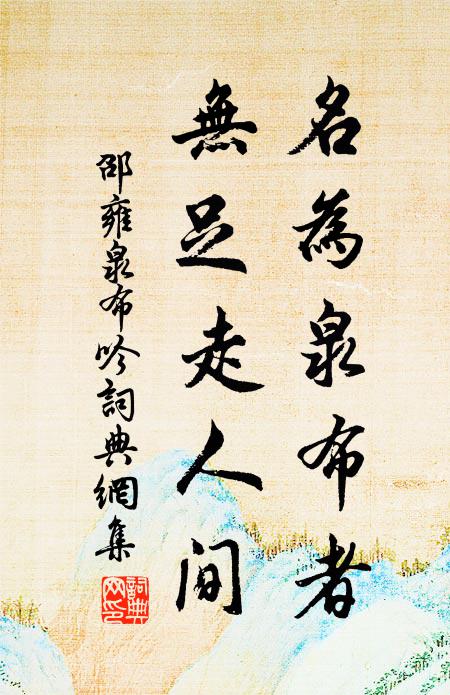 名為泉布者
無足走人间
邵雍泉布吟詞典網集
詞典网印